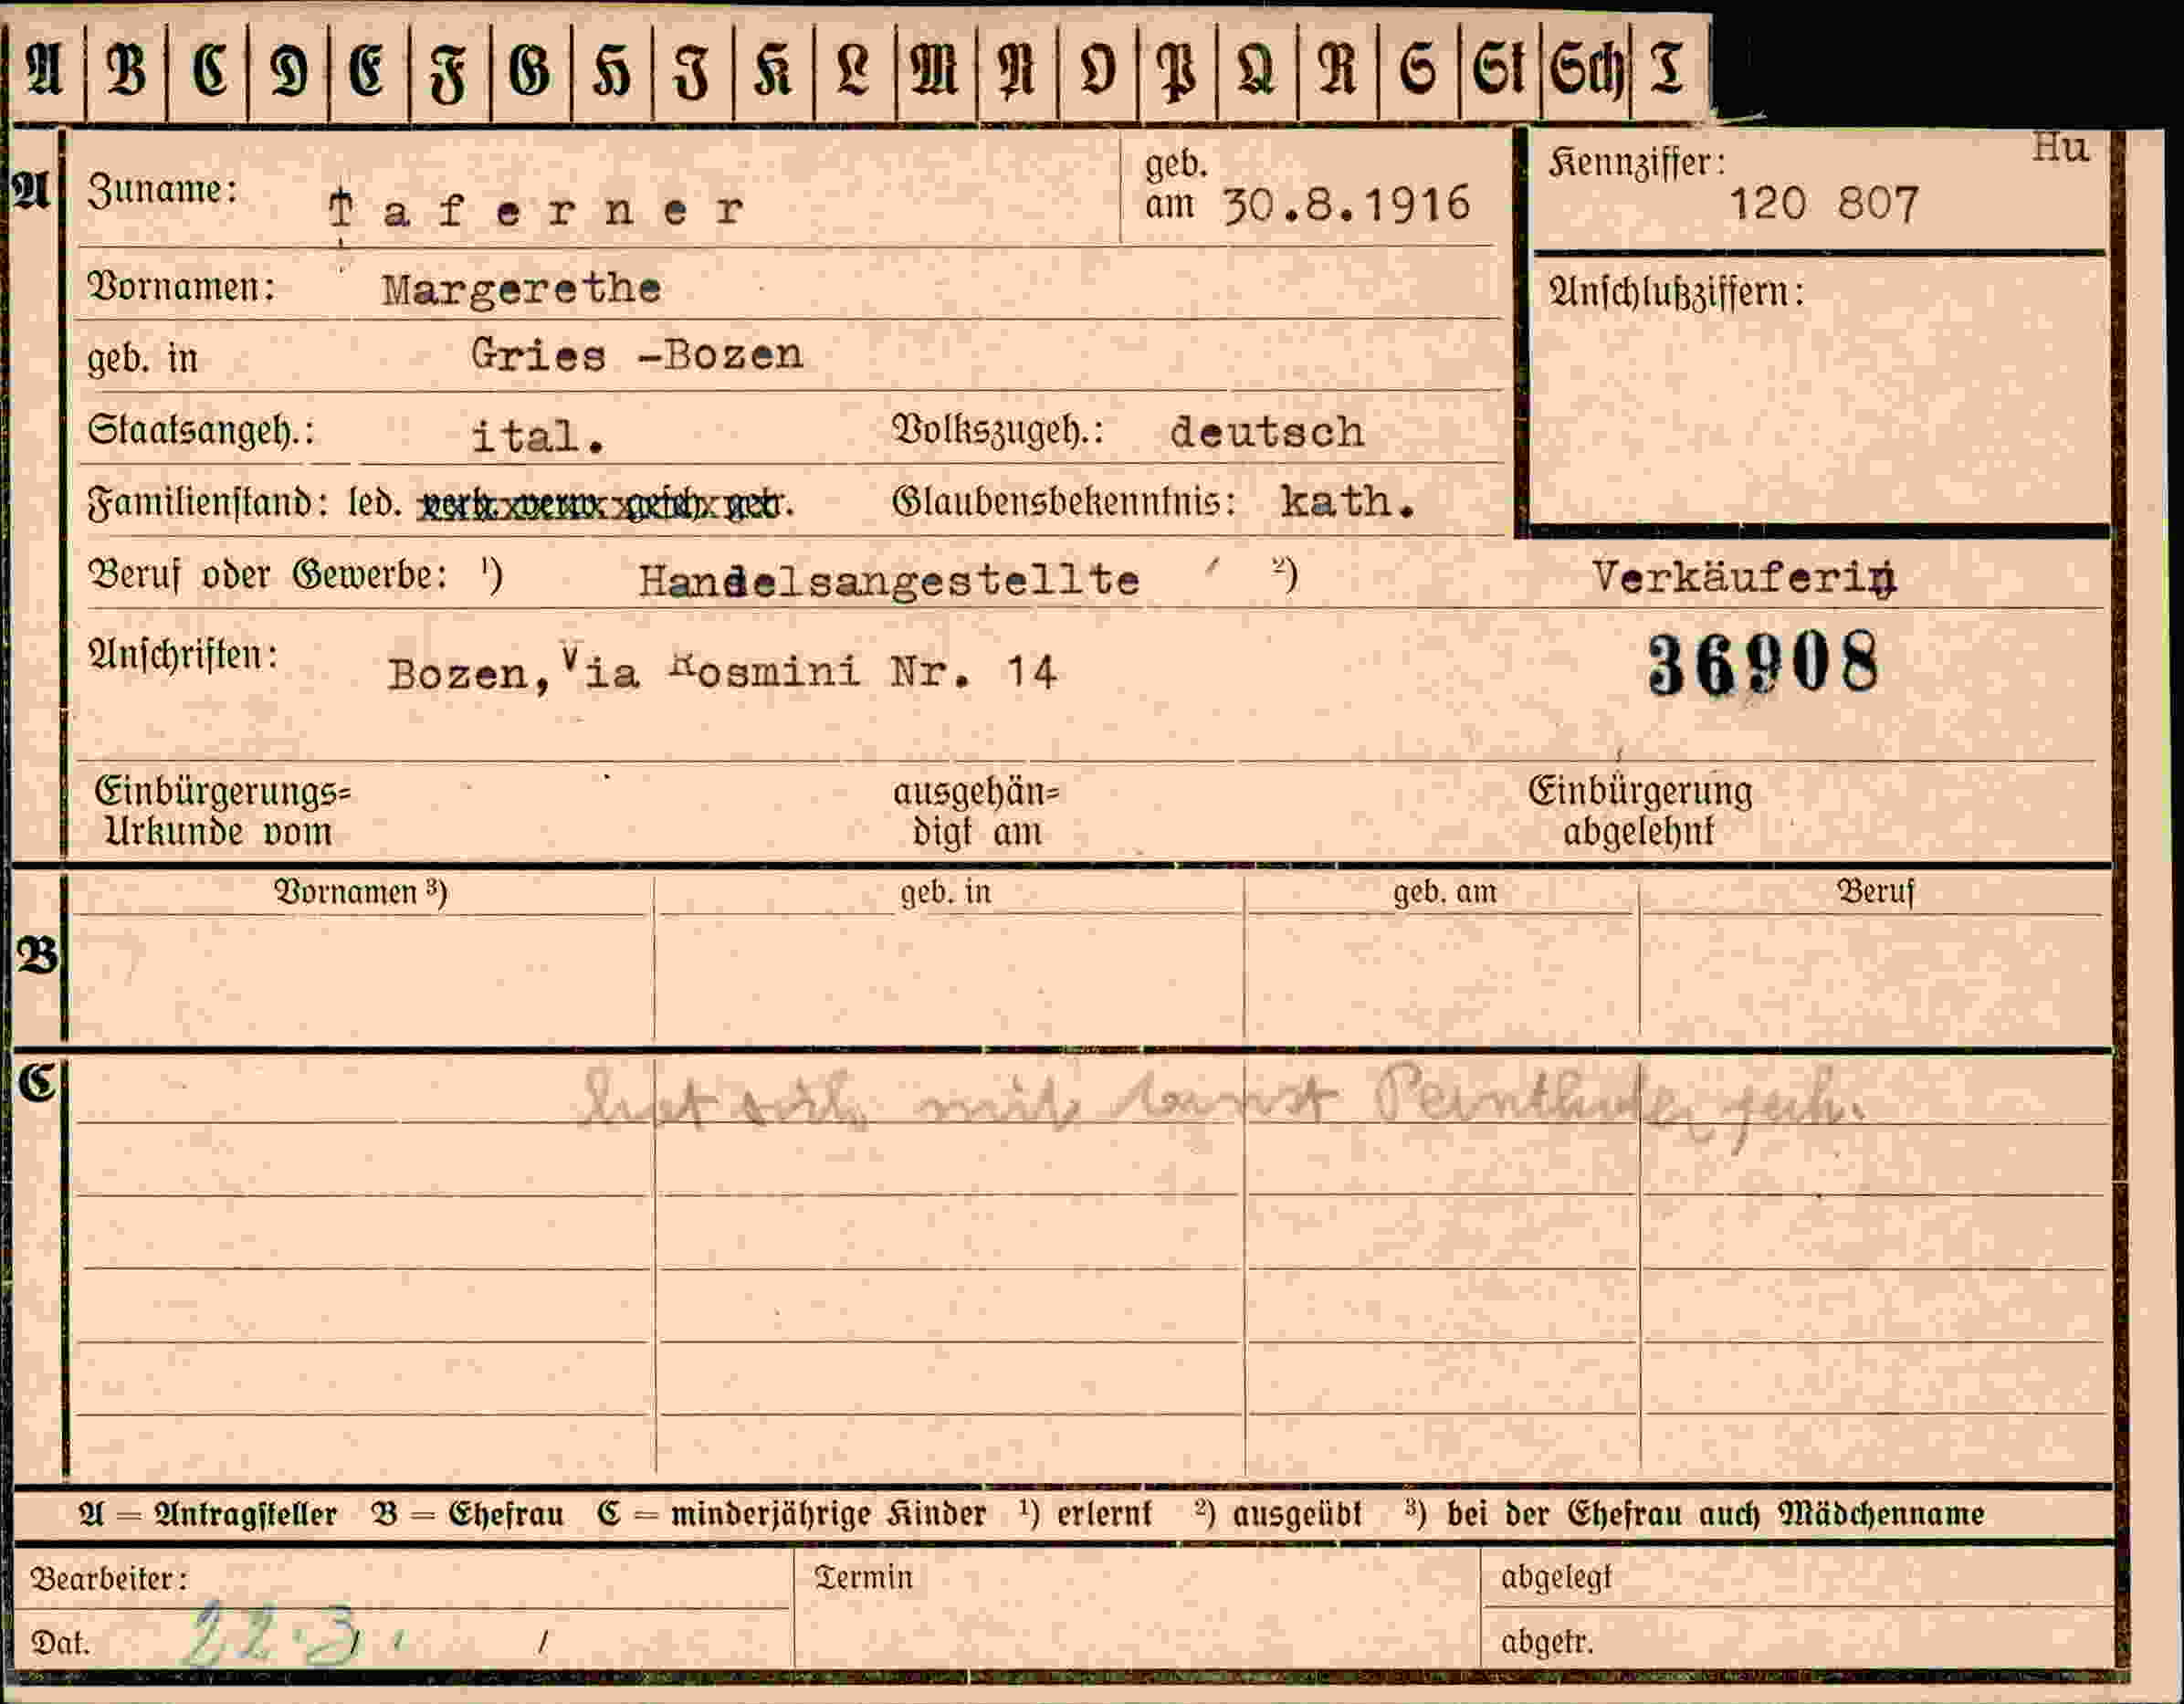 A B C D E F G H J K L M N O P Q R S St Sch T
Hu
A Zuname: Taferner geb. am 30.8.1916 Kennziffer: 120 807
Vornamen: Margerethe Anschlußziffern:
geb. in Gries -Bozen
Staatsangeh.: ital. Volkszugeh.: deutsch
Familienstand: led. verh. verw. gesch. getr. Glaubensbekenntnis: kath.
Beruf oder Gewerbe: ¹) Handelsangestellte ²) Verkäuferin
Anschriften: Bozen, Via Rosmini Nr. 14 36908
Einbürgerungs= ausgehän= Einbürgerung
Urkunde vom digt am abgelehnt
Vornamen ³) geb. in geb. am Beruf
B
C
hat sich mit
A = Antragsteller B = Ehefrau C = minderjährige Kinder ¹) erlernt ²) ausgeübt ³) bei der Ehefrau auch Mädchenname
Bearbeiter: Termin abgelegt
Dat. 22.3. / / abgetr.